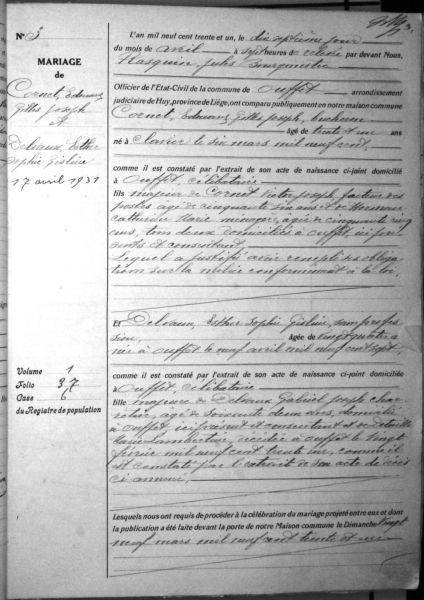 N° 3
MARIAGE
de
Cornet, Edouard
Gilles Joseph
&
Delvaux, Esther
Sophie Gislène
17 avril 1931
Volume 1
Folio 37
Case 6
du Registre de population
L'an mil neuf cent trente et un, le dix septième jour
du mois de avril à sept heures d par devant Nous,
Jules Bourgmestre
Officier de l'Etat-Civil de la commune de Ouffet arrondissement
judiciaire de Huy, province de Liége, ont comparu publiquement en notre maison commune
Cornet, Edouard Gilles Joseph,
âgé de trente et un ans
né à Clavier le six mars mil neuf cent,
comme il est constaté par l'extrait de son acte de naissance ci-joint domicilié
à Ouffet, célibataire
fils majeur de Cornet Victor Joseph, facteur des
postes âgé de cinquante six ans et de
Catherine Marie ménagère, âgée de cinquante cinq
ans, tous deux domiciliés à Ouffet ici pré
sents et consentant.
Lequel a justifié avoir rempli ses obliga
tions sur la milice conformément à la loi.
Et Delvaux, Esther Sophie Gislène, sans profes
sion, âgée de vingt quatre a
née à Ouffet le neuf avril mil neuf cent sept,
comme il est constaté par l'extrait de son acte de naissance ci-joint domiciliée
à Ouffet, célibataire
fille majeure de Delvaux Gabriel Joseph
âgé de soixante deux ans, domicilié
à Ouffet, ici présent et consentant et de
Marie Lambertine, décédée à Ouffet le vingt
février mil neuf cent trente un, comme il
est constaté par l'extrait de son acte de décès
ci annexé,
Lesquels nous ont requis de procéder à la célébration du mariage projeté entre eux et dont
la publication a été faite devant la porte de notre Maison commune le Dimanche vingt
neuf mars mil neuf cent trente et un